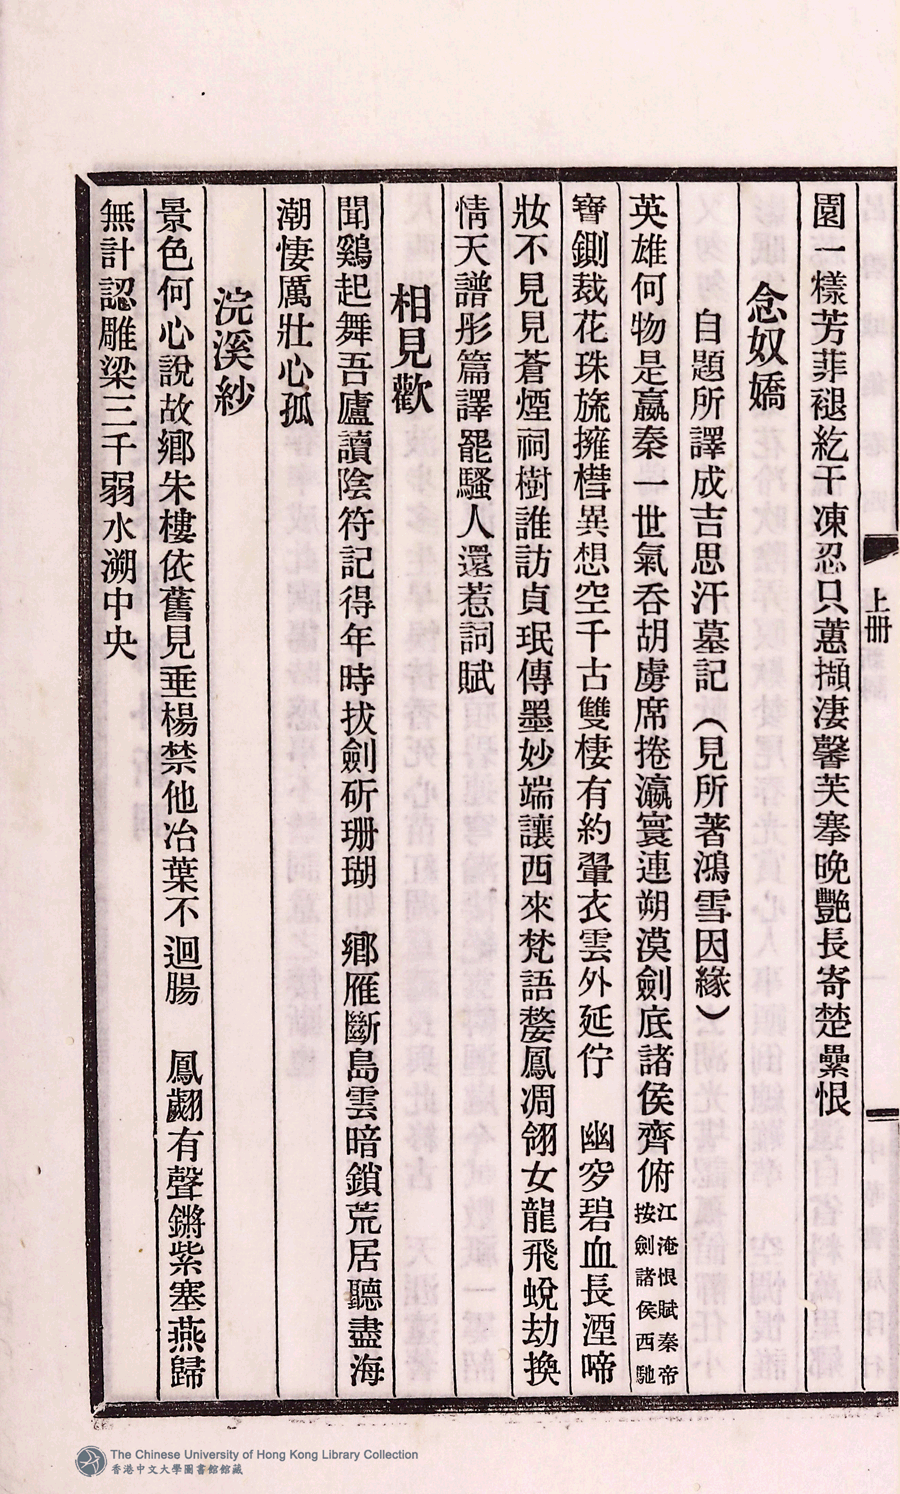 園一樣芳菲褪紇干凍忍只蕙擷淒馨芙搴晚艷長寄楚纍恨
念奴嬌
自題所譯成吉思汗墓記（見所著鴻雪因緣）
英雄何物是嬴秦一世氣吞胡虜席捲瀛寰連朔漠劍底諸侯齊俯江淹恨賦秦帝按劍諸侯西馳
寶鍘裁花珠旒擁櫘異想空千古雙棲有約翬衣雲外延佇　幽穸碧血長湮啼
妝不見見蒼煙祠樹誰訪貞珉傳墨妙端讓西來梵語嫠鳳凋翎女龍飛蛻劫換
情天譜彤篇譯罷騷人還惹詞賦
相見歡
聞鷄起舞吾廬讀陰符記得年時拔劍斫珊瑚　鄉雁斷島雲暗鎖荒居聽盡海
潮悽厲壯心孤
浣溪紗
景色何心說故鄉朱樓依舊見垂楊禁他冶葉不迴腸　鳳翽有聲鏘紫塞燕歸
無計認雕梁三千弱水溯中央
上冊
The Chinese University of Hong Kong Library Collection
香港中文大學圖書館館藏